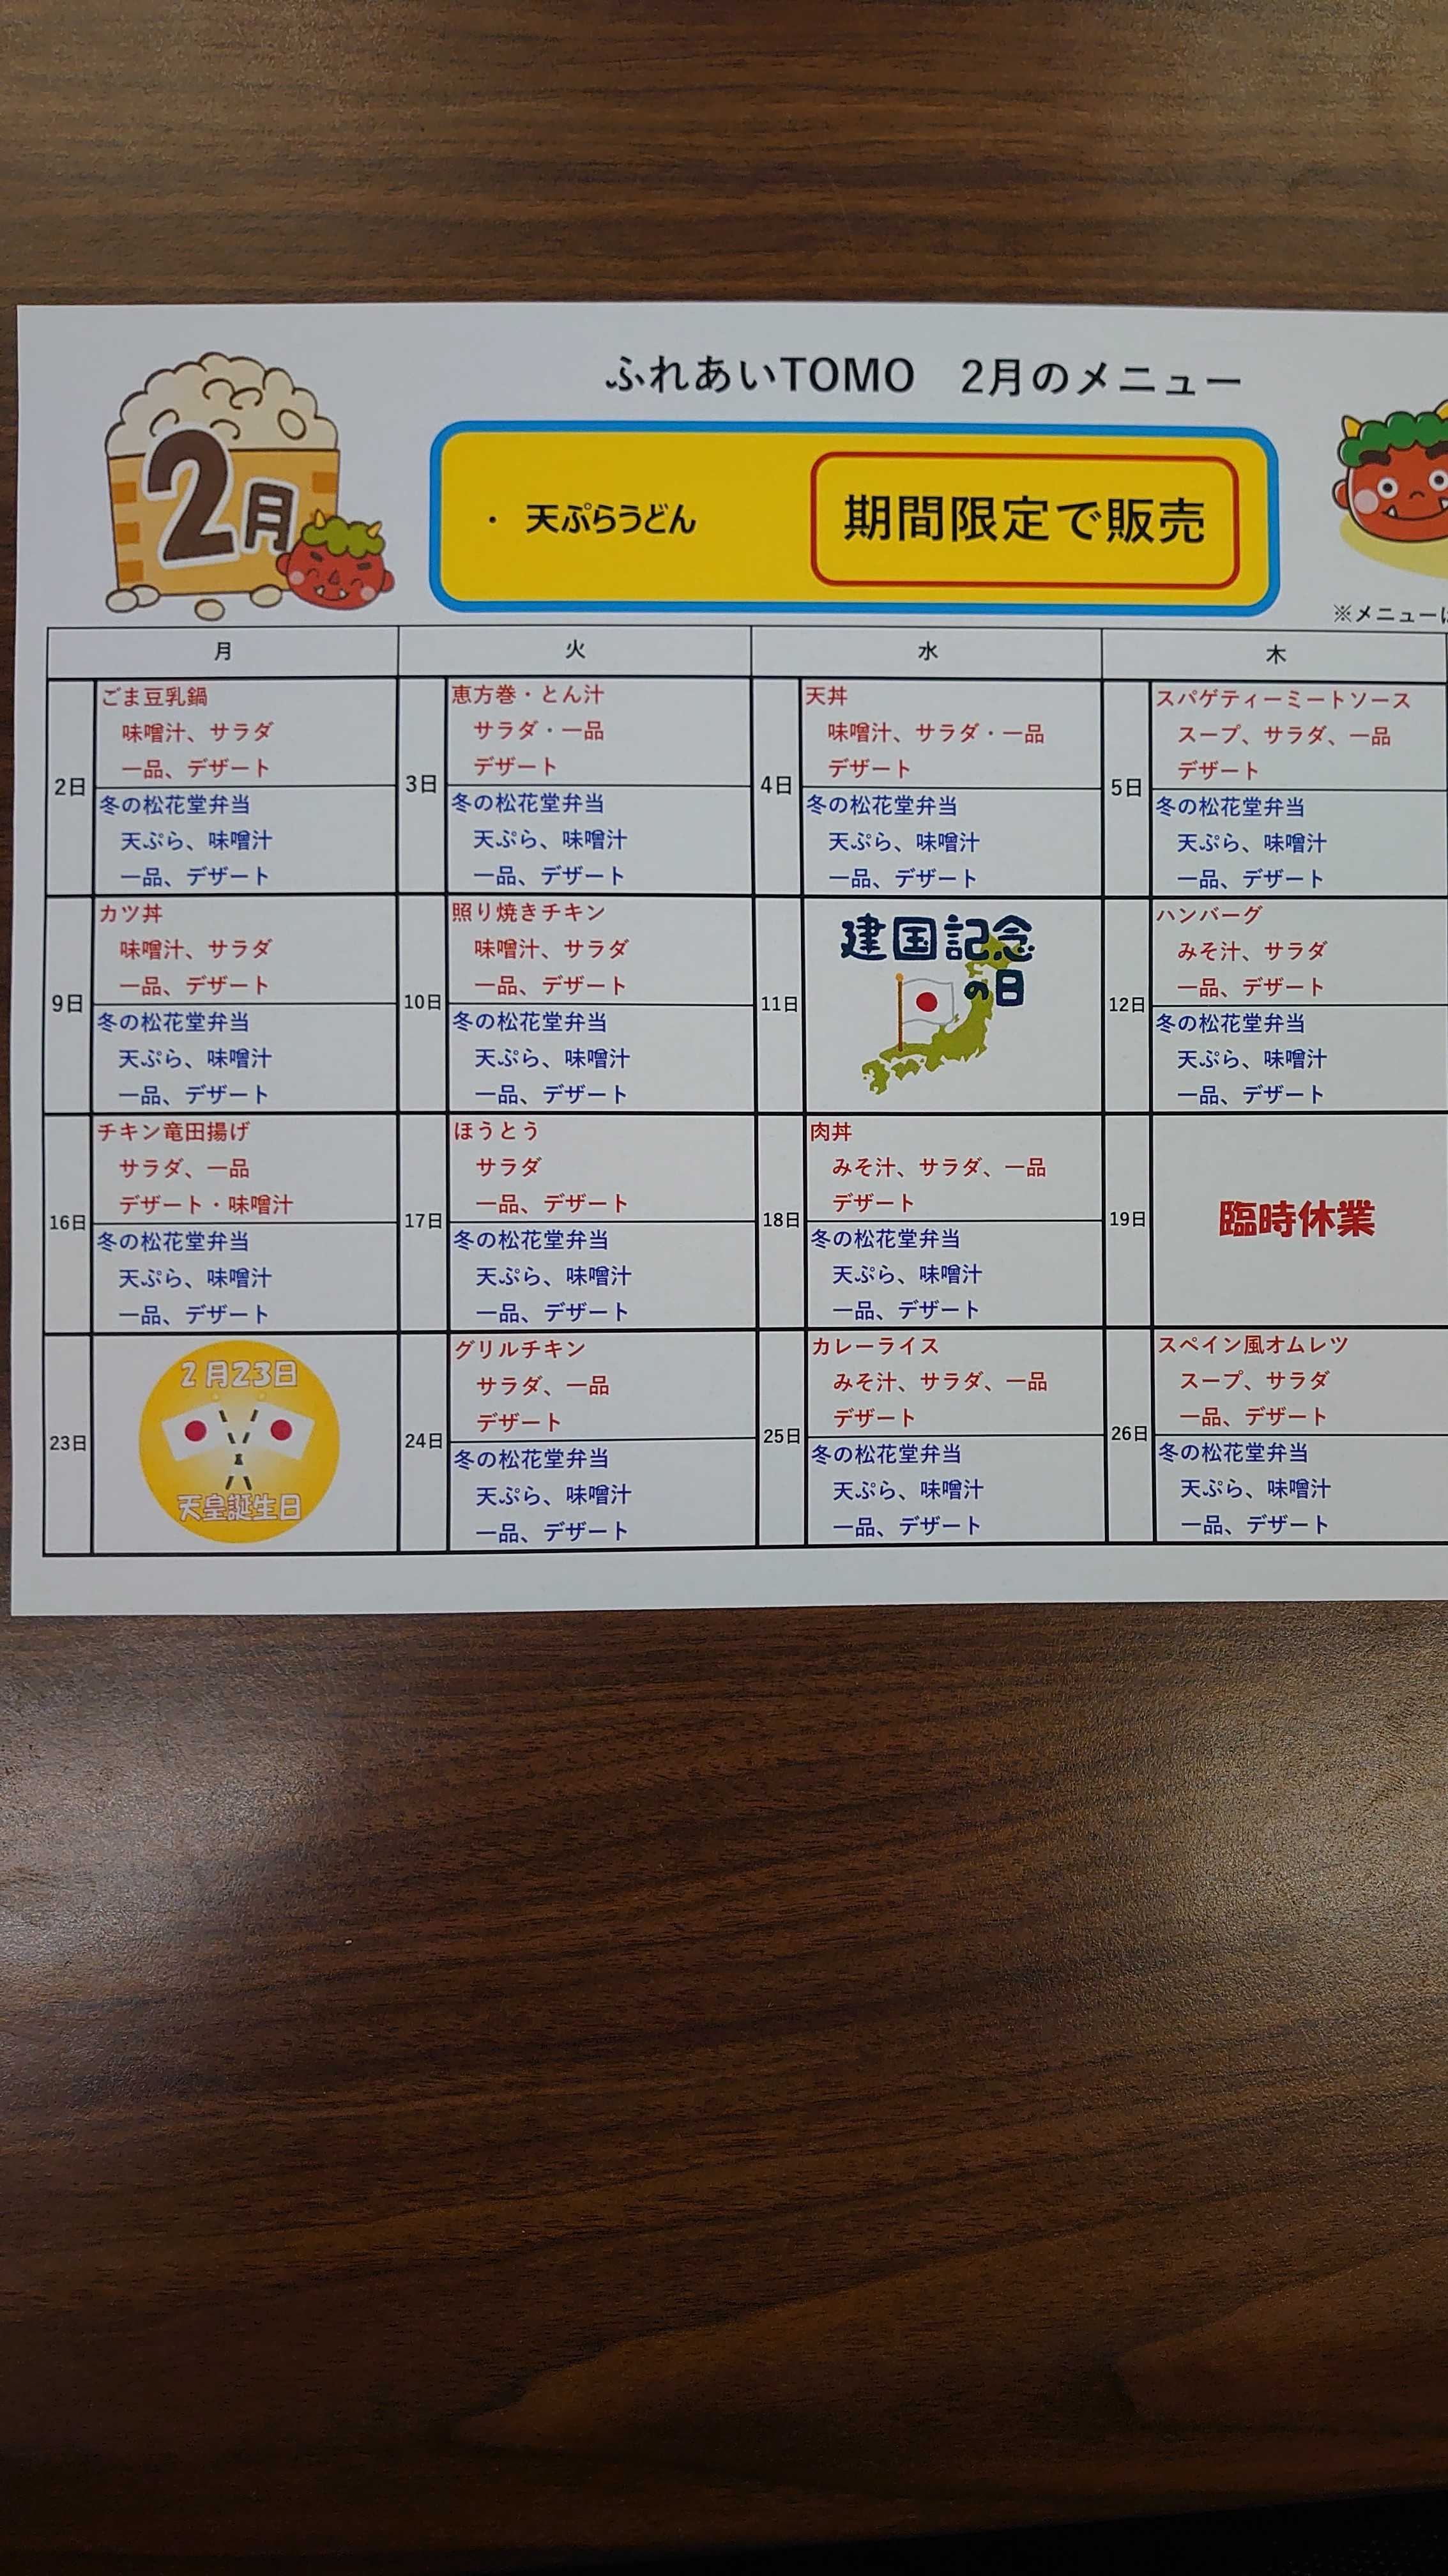 ふれあいTOMO　2月のメニュー
2月
・ 天ぷらうどん
期間限定で販売
※メニュー
月 火 水 木
2日
ごま豆乳鍋
味噌汁、サラダ
一品、デザート
冬の松花堂弁当
天ぷら、味噌汁
一品、デザート
3日
恵方巻・とん汁
サラダ・一品
デザート
冬の松花堂弁当
天ぷら、味噌汁
一品、デザート
4日
天丼
味噌汁、サラダ・一品
デザート
冬の松花堂弁当
天ぷら、味噌汁
一品、デザート
5日
スパゲティーミートソース
スープ、サラダ、一品
デザート
冬の松花堂弁当
天ぷら、味噌汁
一品、デザート
9日
カツ丼
味噌汁、サラダ
一品、デザート
冬の松花堂弁当
天ぷら、味噌汁
一品、デザート
10日
照り焼きチキン
味噌汁、サラダ
一品、デザート
冬の松花堂弁当
天ぷら、味噌汁
一品、デザート
11日
建国記念
の日
12日
ハンバーグ
みそ汁、サラダ
一品、デザート
冬の松花堂弁当
天ぷら、味噌汁
一品、デザート
16日
チキン竜田揚げ
サラダ、一品
デザート・味噌汁
冬の松花堂弁当
天ぷら、味噌汁
一品、デザート
17日
ほうとう
サラダ
一品、デザート
冬の松花堂弁当
天ぷら、味噌汁
一品、デザート
18日
肉丼
みそ汁、サラダ、一品
デザート
冬の松花堂弁当
天ぷら、味噌汁
一品、デザート
19日
臨時休業
23日
2月23日
天皇誕生日
24日
グリルチキン
サラダ、一品
デザート
冬の松花堂弁当
天ぷら、味噌汁
一品、デザート
25日
カレーライス
みそ汁、サラダ、一品
デザート
冬の松花堂弁当
天ぷら、味噌汁
一品、デザート
26日
スペイン風オムレツ
スープ、サラダ
一品、デザート
冬の松花堂弁当
天ぷら、味噌汁
一品、デザート